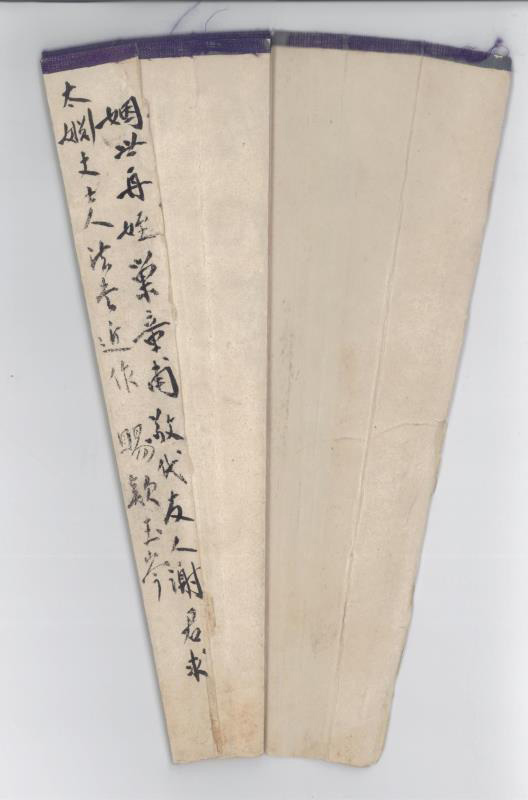 姻世再姪巢章甫敬代友人謝君求
太姻丈大人法書近作 賜款玉岑